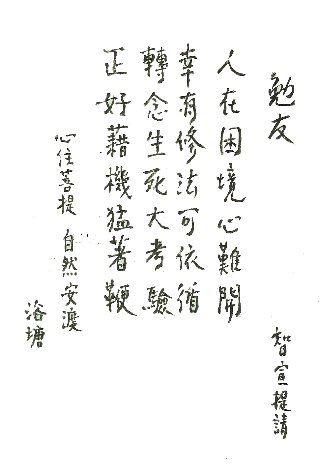 勉友
人在困境心難開
幸有修法可依循
轉念生死大考驗
正好藉機猛著鞭
心住菩提 自然安渡
智宣提請
浴塘